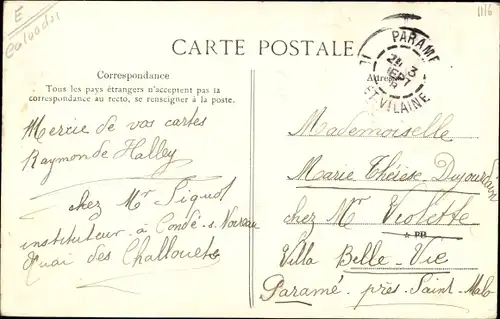 E
Calvados
11/6
CARTE POSTALE
PARAMÉ
3
SEPT
VILAINE
Correspondance
Tous les pays étrangers n'acceptent pas la
correspondance au recto, se renseigner à la poste.
Mercie de vos cartes
Raymonde Halley
chez Mr Piquot
instituteur à Condé-s-Noireau
Quai des Challouets
Mademoiselle
Marie Thérèse Dujourdain
chez Mr Violette
* PB
Villa Belle-Vie
Paramé près Saint-Malo